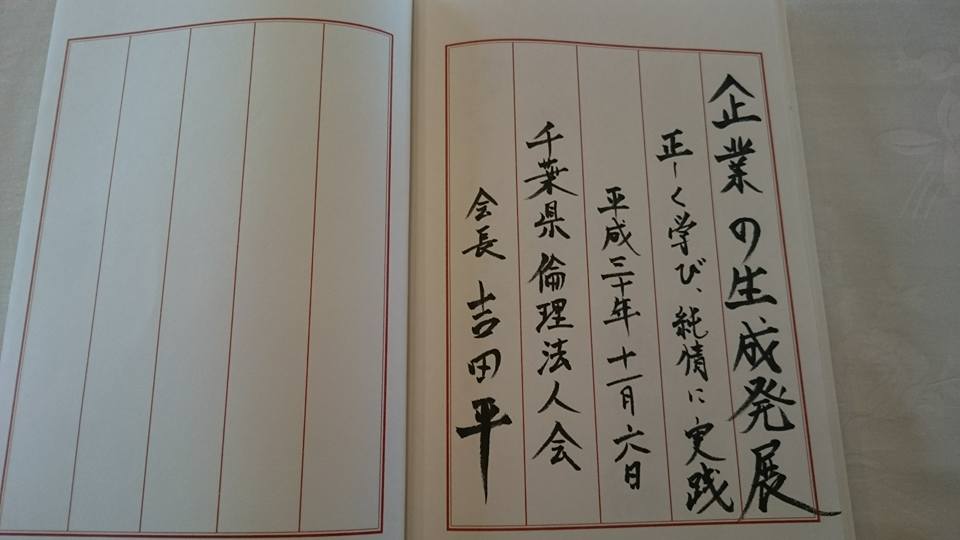 企業の生成発展
正しく学び、純情に実践
平成三十年十一月六日
千葉県倫理法人会
会長 吉田平